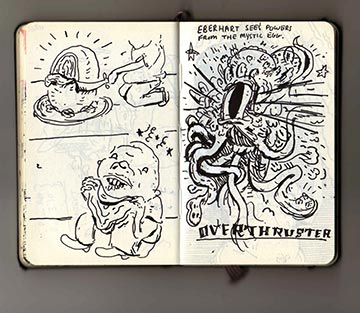 EBERHART SEES POWERS
FROM THE MYSTIC EGG.
OVERTHRUSTER